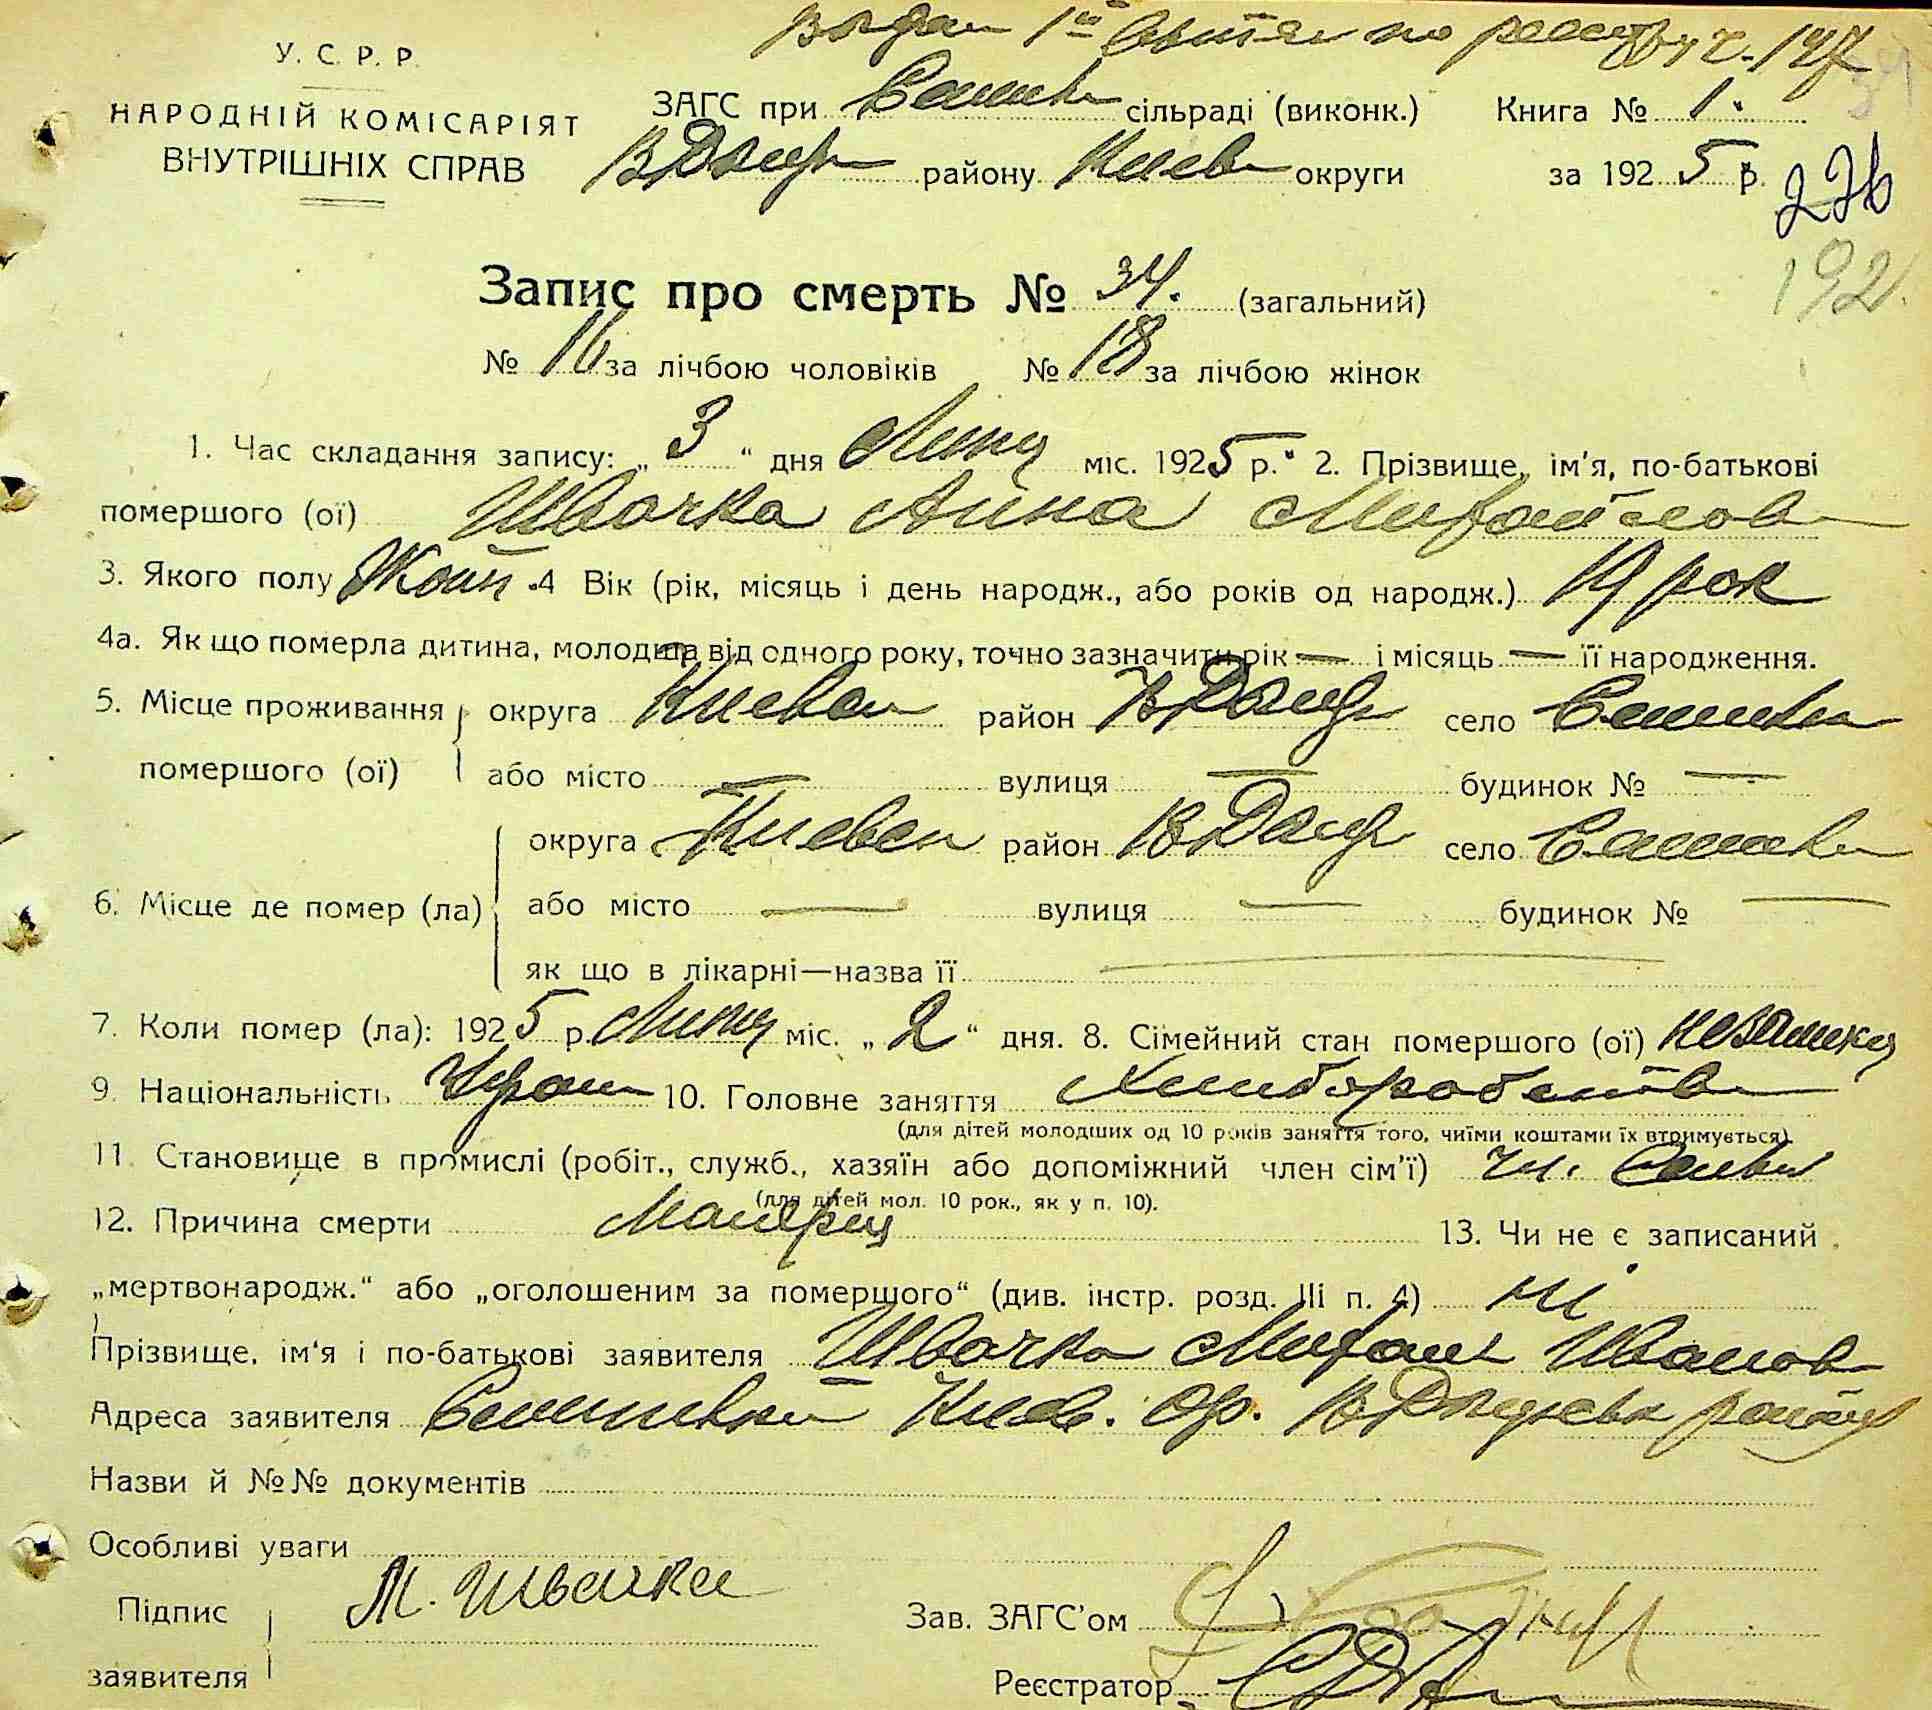 Выдан 1й по реестру 147
У. С. Р. Р.
НАРОДНІЙ КОМІСАРІЯТ
ВНУТРІШНІХ СПРАВ
ЗАГС при сільраді (виконк.) Книга № 1.
району Києв округи за 1925 р.
276
192
Запис про смерть № 34. (загальний)
№ 16 за лічбою чоловіків № 18 за лічбою жінок
1. Час складання запису: „ 3 “ дня Липц міс. 1925 р. 2. Прізвище, ім'я, по-батькові
помершого (ої) Швачка Анна Михайлов
3. Якого полу Жоин. 4 Вік (рік, місяць і день народж., або років од народж.) 19 рок
4а. Як що померла дитина, молодша від одного року, точно зазначити рік — і місяць — її народження.
5. Місце проживання округа Киевск район ВДмер село
помершого (ої) або місто — вулиця — будинок № —
округа Киевск район ВДмер село
6. Місце де помер (ла) або місто — вулиця — будинок № —
як що в лікарні—назва її —
7. Коли помер (ла): 1925 р. Липц міс. „ 2 “ дня. 8. Сімейний стан помершого (ої)
9. Національність Украи 10. Головне заняття Хлиборобств
(для дітей молодших од 10 років заняття того, чиїми коштами їх втримується).
11. Становище в промислі (робіт., служб., хазяїн або допоміжний член сім'ї) чл. Семьи
(для дітей мол. 10 рок., як у п. 10).
12. Причина смерти 13. Чи не є записаний
„мертвонародж.“ або „оголошеним за померщого“ (див. інстр. розд. III п. 4) ні
Прізвище, ім'я і по-батькові заявителя Швачка Михаил Иванов
Адреса заявителя Киев. Ор. район
Назви й №№ документів
Особливі уваги
Підпис М. Швачка Зав. ЗАГС'ом
заявителя Реєстратор